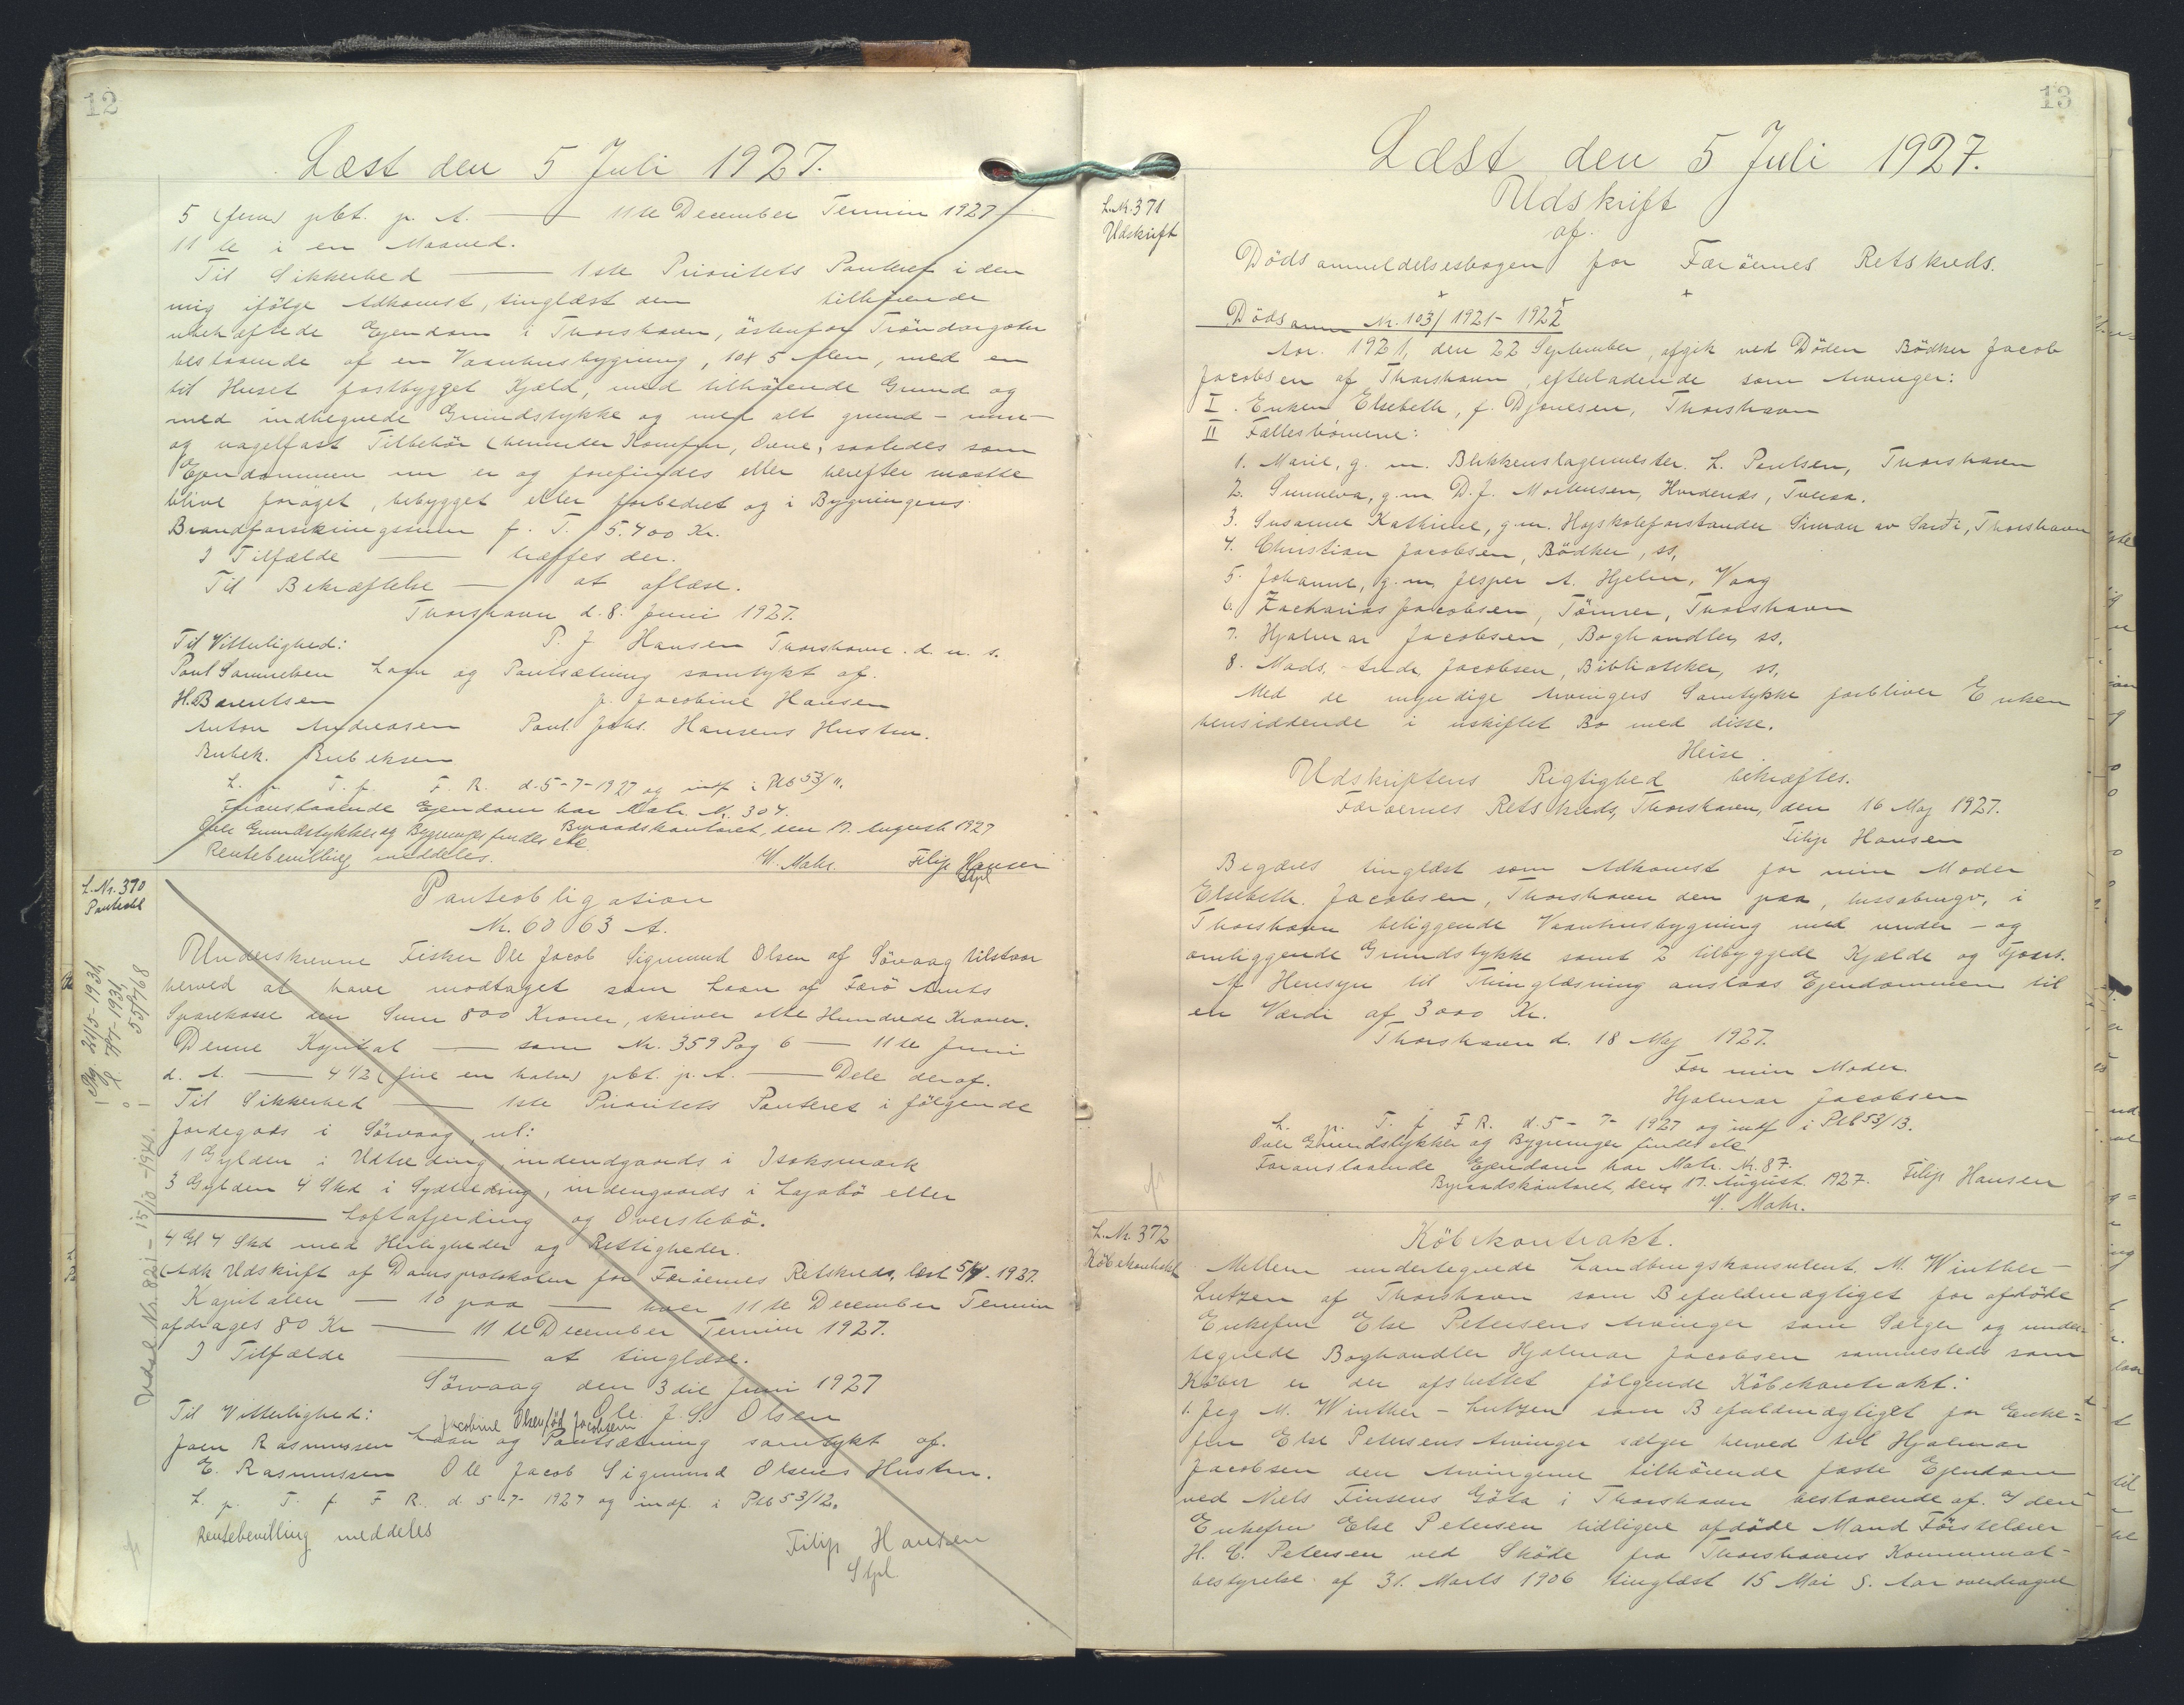 12
Læst den 5 Juli 1927.
5 (fem) pCt. p. A. — 11te December Termin 1927 —
11te i en Maaned.
Til Sikkerhed — 1ste Prioritets Panteret i den
mig ifölge Adkomst, tinglæst den tilhörende
ubehæftede Ejendom i Thorshavn, östenfor Tröndargöta
bestaaende af en Vaanhusbygning, 10x5 Alen, med en
til Huset fastbygget Kjæld, med tilhörende Grund og
med indhegnede Grundstykke og med alt grund- mur-
og nagelfast Tilbehör (herunder Komfur, Ovne, saaledes som
Ejendommen nu er og forefindes eller herefter maatte
blive foröget, bebygget eller forbedret og i Bygningens
Brandforsikringssum f. T. 5.400 Kr.
I Tilfælde — træffes der.
Til Bekræftelse — at aflæse.
Thorshavn d. 8. Juni 1927.
Til Vitterlighed: P. J. Hansen Thorshavn. d. u. s.
Poul Samuelsen Laan og Pantsætning samtykt af.
H. Barentsen J. Jacobine Hansen
Anton Andreasen Poul Johs. Hansens Hustru.
Rubek. Rubeksen
L. p. T. f. F. R. d. 5-7-1927 og indf i Ptb 53/11.
Foranstaaende Ejendom har Matr. Nr. 304.
Byraadskontoret, den 17. August 1927
Ovle Grundstykker og Bygninger findes ete
Rentebevilling meddeles. W. Mohr. Filip Hansen
Stpl
L. Nr. 370
Panteobl
Panteobligation
Nr. 60 63 A.
Underskrevne Fisker Ole Jacob Sigmund Olsen af Sörvaag tilstaar
herved at have modtaget som Laan af Færö Amts
Sparekasse den Sum 800 Kroner, skriver otte Hundrede Kroner.
Denne Kapital — som Nr. 359 Pag 6 — 11te Juni
d. A. — 4 1/2 (fire en halv) pCt. p. A. — Dele deraf.
Til Sikkerhed — 1ste Prioritets Panteret i fölgende
Jordegods i Sörvaag, nl:
1 Gylden i Udtreding, indendgaards i Isaksmark
3 Gylden 4 Skd i Sydtreding, indengaards i Lajabö eller
Loftafjerding og Overstebö.
4 Gl 4 Skd med Herligheder og Rettigheder.
(Adk Udskrift af Domsprotokolen for Færöernes Retskreds, læst 5/4-1927.
Kapitalen — 10 paa — hver 11te December Termin
afdrages 80 Kr — 11te December Termin 1927.
I Tilfælde — at tinglæse.
Sörvaag den 3die Juni 1927
Til Vitterlighed: Ole J. S. Olsen
Jacobine Olsen född Jacobsen
Joen Rasmussen Laan og Pantsætning samtykt af.
E. Rasmussen Ole Jacob Sigmund Olsens Hustru.
L. p. T. f. F R. d. 5-7-1927 og indf. i Ptb 53/12.
Rentebevilling meddeles
Filip Hansen
Stpl
Udsl. Nr. 82 i - 15/10 - 1940.
13
Læst den 5 Juli 1927.
L.Nr. 371
Udskrift
Udskrift
af
Dödsanmeldelsesbogen for Færöernes Retskreds.
Dödsanm Nr. 103/1921-1922
Aar. 1921, den 22 September, afgik ved Döden Bödker Jacob
Jacobsen af Thorshavn, efterladende som Arvinger:
I. Enken Elsebeth, f. Djonesen, Thorshavn
II Fællesbörnene:
1. Marie, g. m. Blikkenslagermester. L. Poulsen, Thorshavn
2. Sunneva, g. m. D. J. Mortensen, Hvidenæs, Tveraa.
3. Susanne Kathrine, g. m. Hojskoleforstander Simun av Sarði, Thorshavn
4. Christian Jacobsen, Bödker, ss,
5. Johanne, g. m. Jesper A. Hjelm, Vaag
6. Zacharias Jacobsen, Tömrer, Thorshavn
7. Hjalmar Jacobsen, Boghandler, ss.
8. Mads, Andr. Jacobsen, Bibliotekar, ss,
Med de myndige Arvingers Samtykke forbliver Enken
hensiddende i uskiftet Bo med disse.
Heise.
Udskriftens Rigtighed bekræftes.
Færöernes Retskreds, Thorshavn, den 16 Maj 1927.
Filip Hansen
Begæres tinglæst som Adkomst for min Moder
Elsebeth. Jacobsen, Thorshavn den paa, hussabrugv, i
Thorshavn beliggende Vaanhusbygning med under- og
omliggende Grundstykke samt 2 tilbyggede Kjælde og Fjøset.
Af Hensyn til Thinglæsning anslaas Ejendommen til
en Værdi af 3000 Kr.
Thorshavn d. 18 Maj 1927.
For min Moder.
Hjalmar Jacobsen
L. p. T. f F R. d. 5-7-1927 og indf i Ptb 53/13.
Ovle Grundstykker og Bygninger findes ete
Foranstaaende Ejendom har Matr. Nr. 87.
Byraadskontoret, den 17. August 1927. Filip Hansen
W. Mohr.
L. Nr. 372
Köbekontrakt
Köbekontrakt.
Mellem undertegnede Landbrugskonsulent. M. Winther-
Lutzen af Thorshavn som Befuldmægtiget for afdöde
Enkefru Else Petersens Arvinger som Sælger og under-
tegnede Boghandler Hjalmar Jacobsen sammesteds som
Köber er der afsluttet fölgende Köbekontrakt:
1. Jeg M. Winther-Lutzen som Befuldmægtiget for Enke=
fru Else Petersens Arvinger sælger herved til Hjalmar
Jacobsen den Arvingerne tilhörende faste Ejendom
ved Niels Finsens Göta i Thorshavn bestaaende af. I den
Enkefru Else Petersen tidligere afdöde Mand Förstelærer
H. C. Petersen ved Sköde fra Thorshavns Kommunal-
bestyrelse af 31. Marts 1906 tinglæst 15 Mai s. Aar overdragne